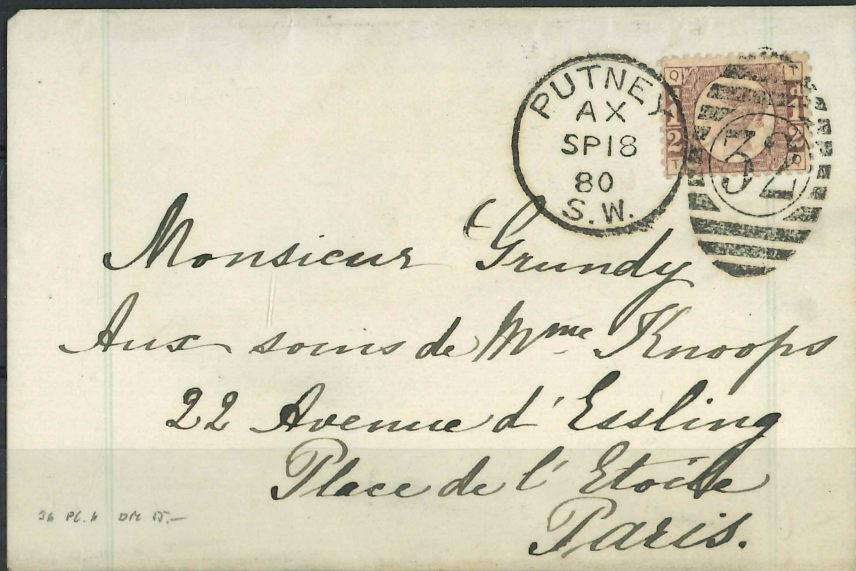 PUTNEY
AX
SP18
80
S.W.
Q T
1/2 1/2
T Q
32
Monsieur Grundy
Aux soins de Mme Knoops
22 Avenue d'Essling
Place de l'Etoile
Paris.